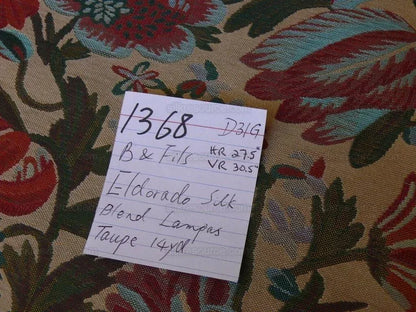 1368 D31G
B & Fils HR 27.5"
VR 30.5"
Eldorado Silk
Blend Lampas
Taupe 14yd